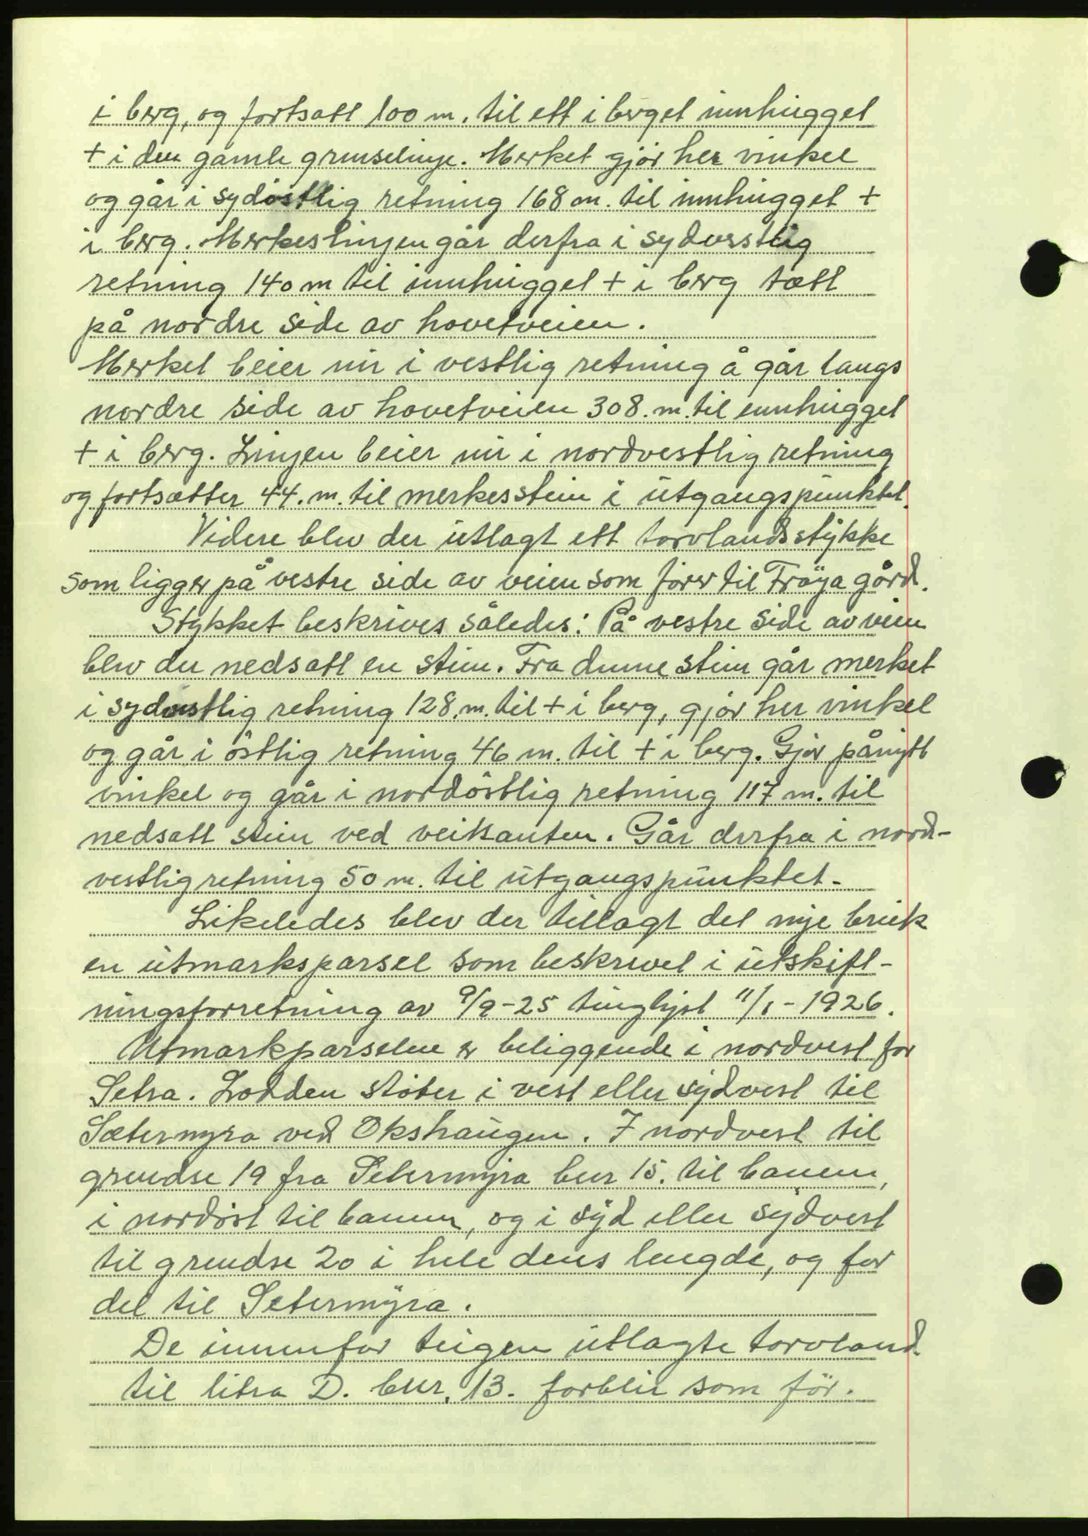 i berg, og fortsatt 100 m. til ett i berget innhugget
+ i den gamle grenselinje. Merket gjør her vinkel
og går i sydøstlig retning 168 m. til innhugget +
i berg. Merkeslinjen går derfra i sydvestlig
retning 140 m til innhugget + i berg tett
på nordre side av hovetveien.
Merket beier nu i vestlig retning å går langs
nordre side av hovetveien 308. m. til innhugget
+ i berg. Linjen beier nu i nordvestlig retning
og fortsætter 44. m. til merkesstein i utgangspunktet.
Videre blev der utlagt ett torvlandsstykke
som ligger på vestre side av veien som fører til Frøya gård.
Stykket beskrives således: På vestre side av veien
blev der nedsatt en stein. Fra denne stein går merket
i sydøstlig retning 128. m. til + i berg, gjør her vinkel
og går i östlig retning 46 m. til + i berg. Gjør pånytt
vinkel og går i nordöstlig retning 117 m. til
nedsatt stein ved veikanten. Går derfra i nord-
vestlig retning 50 m. til utgangspunktet.
Likeledes blev der tillagt det nye bruk
en utmarksparsel som beskrevet i utskift-
ningsforretning av 9/9-25 tinglyst 11/1-1926.
Utmarkparselene er beliggende i nordvest for
Setra. Lodden støter i vest eller sydvest til
Sætermyra ved Okshaugen. I nordvest til
grendse 19 fra Setermyra bnr 15. til banen,
i nordøst til banen, og i syd eller sydvest
til grendse 20 i hele dens lengde, og for
del til Setermyra.
De innenfor teigen utlagte torvland
til litra D. bnr. 13. forblir som för.